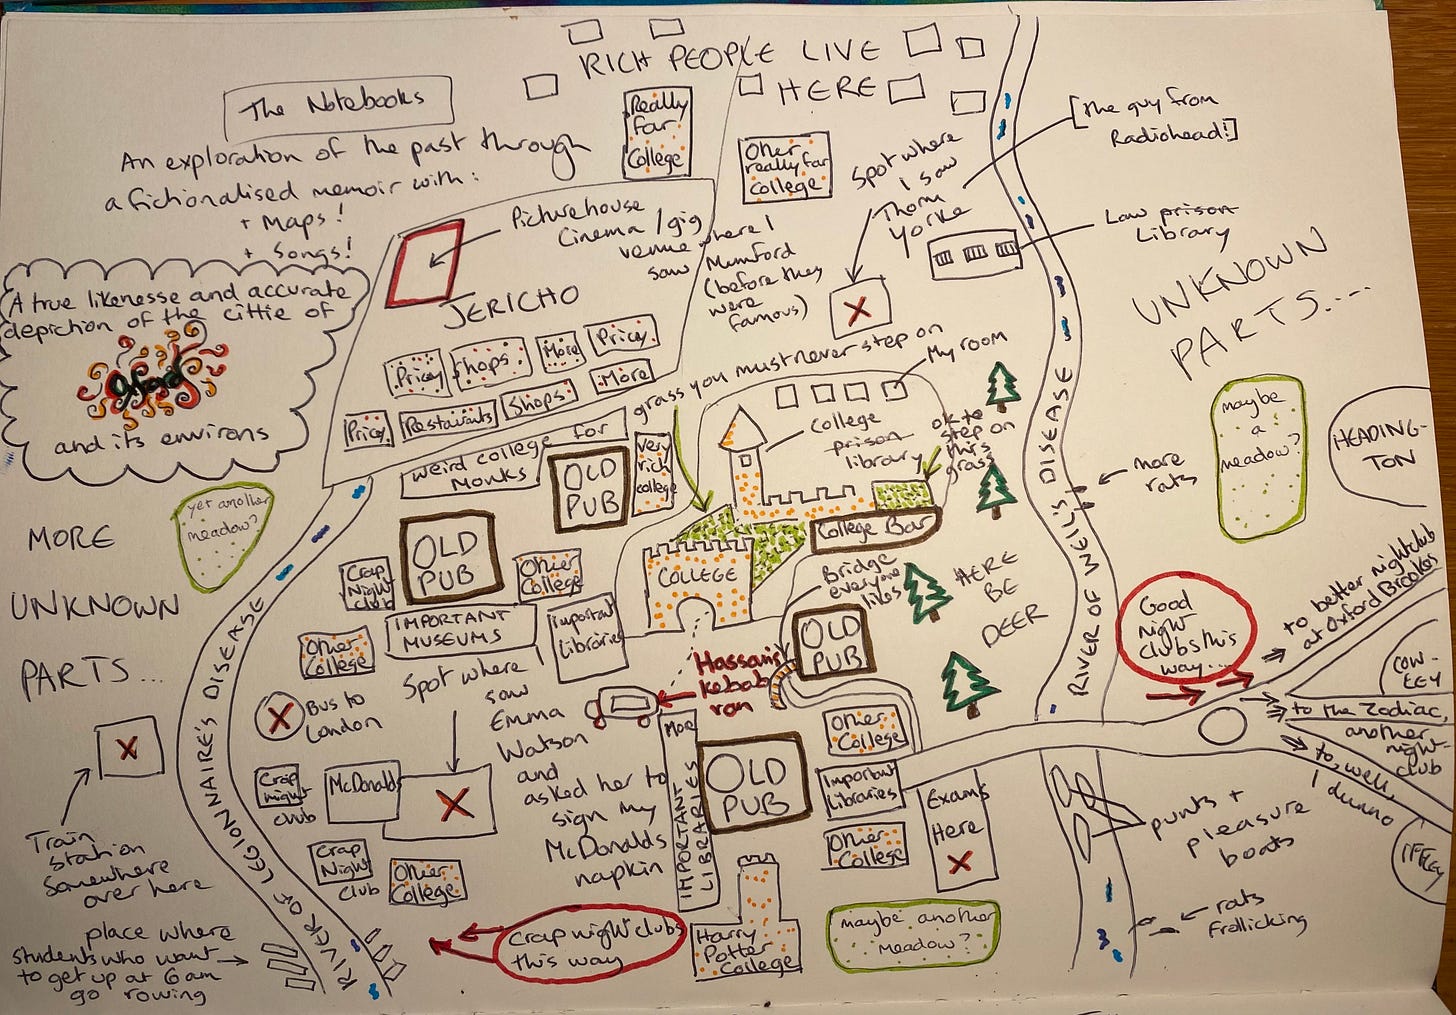 RICH PEOPLE LIVE
HERE
The Notebooks
An exploration of the past through
a fictionalised memoir with:
+ Maps!
+ Songs!
A true likenesse and accurate
depiction of the cittie of
Oxford
and its environs
Really
far
College
Other
really far
college
Spot where
I saw
Thom
Yorke
[the guy from
Radiohead!]
Law prison
Library
UNKNOWN
PARTS....
Picturehouse
Cinema / gig
venue where I
saw Mumford
(before they
were
famous)
JERICHO
Pricey
Shops
More
Pricey
Pricey
Restaurants
Shops
More
grass you must never step on
My room
College
prison
library
ok to
step on
this
grass
weird college for
Monks
OLD
PUB
very
rich
college
College Bar
yet another
meadow?
MORE
UNKNOWN
PARTS...
OLD
PUB
Crap
Night
club
Other
College
IMPORTANT
MUSEUMS
Important
Libraries
COLLEGE
Bridge
everyone
likes
OLD
PUB
HERE
BE
DEER
RIVER OF WEIL'S DISEASE
more
rats
maybe
a
meadow?
HEADING-
TON
Good
night
clubs this
way...
to better nightclub
at Oxford Brookes
COW-
LEY
to the Zodiac,
another
night-
club
to, well,
I dunno
IFFLEY
Other
College
RIVER OF LEGIONNAIRE'S DISEASE
Bus to
London
Spot where
I saw
Emma
Watson
and
asked her to
sign my
McDonalds
napkin
Hassan's
kebab
van
Train
station
Somewhere
over here
Crap
night
club
McDonalds
Crap
Night
club
Other
College
More
IMPORTANT
LIBRARIES
OLD
PUB
Other
College
Important
Libraries
Other
College
Exams
Here
punts +
pleasure
boats
rats
frollicking
place where
students who want
to get up at 6am
go rowing
Crap night clubs
this way
Harry
Potter
College
maybe another
meadow?